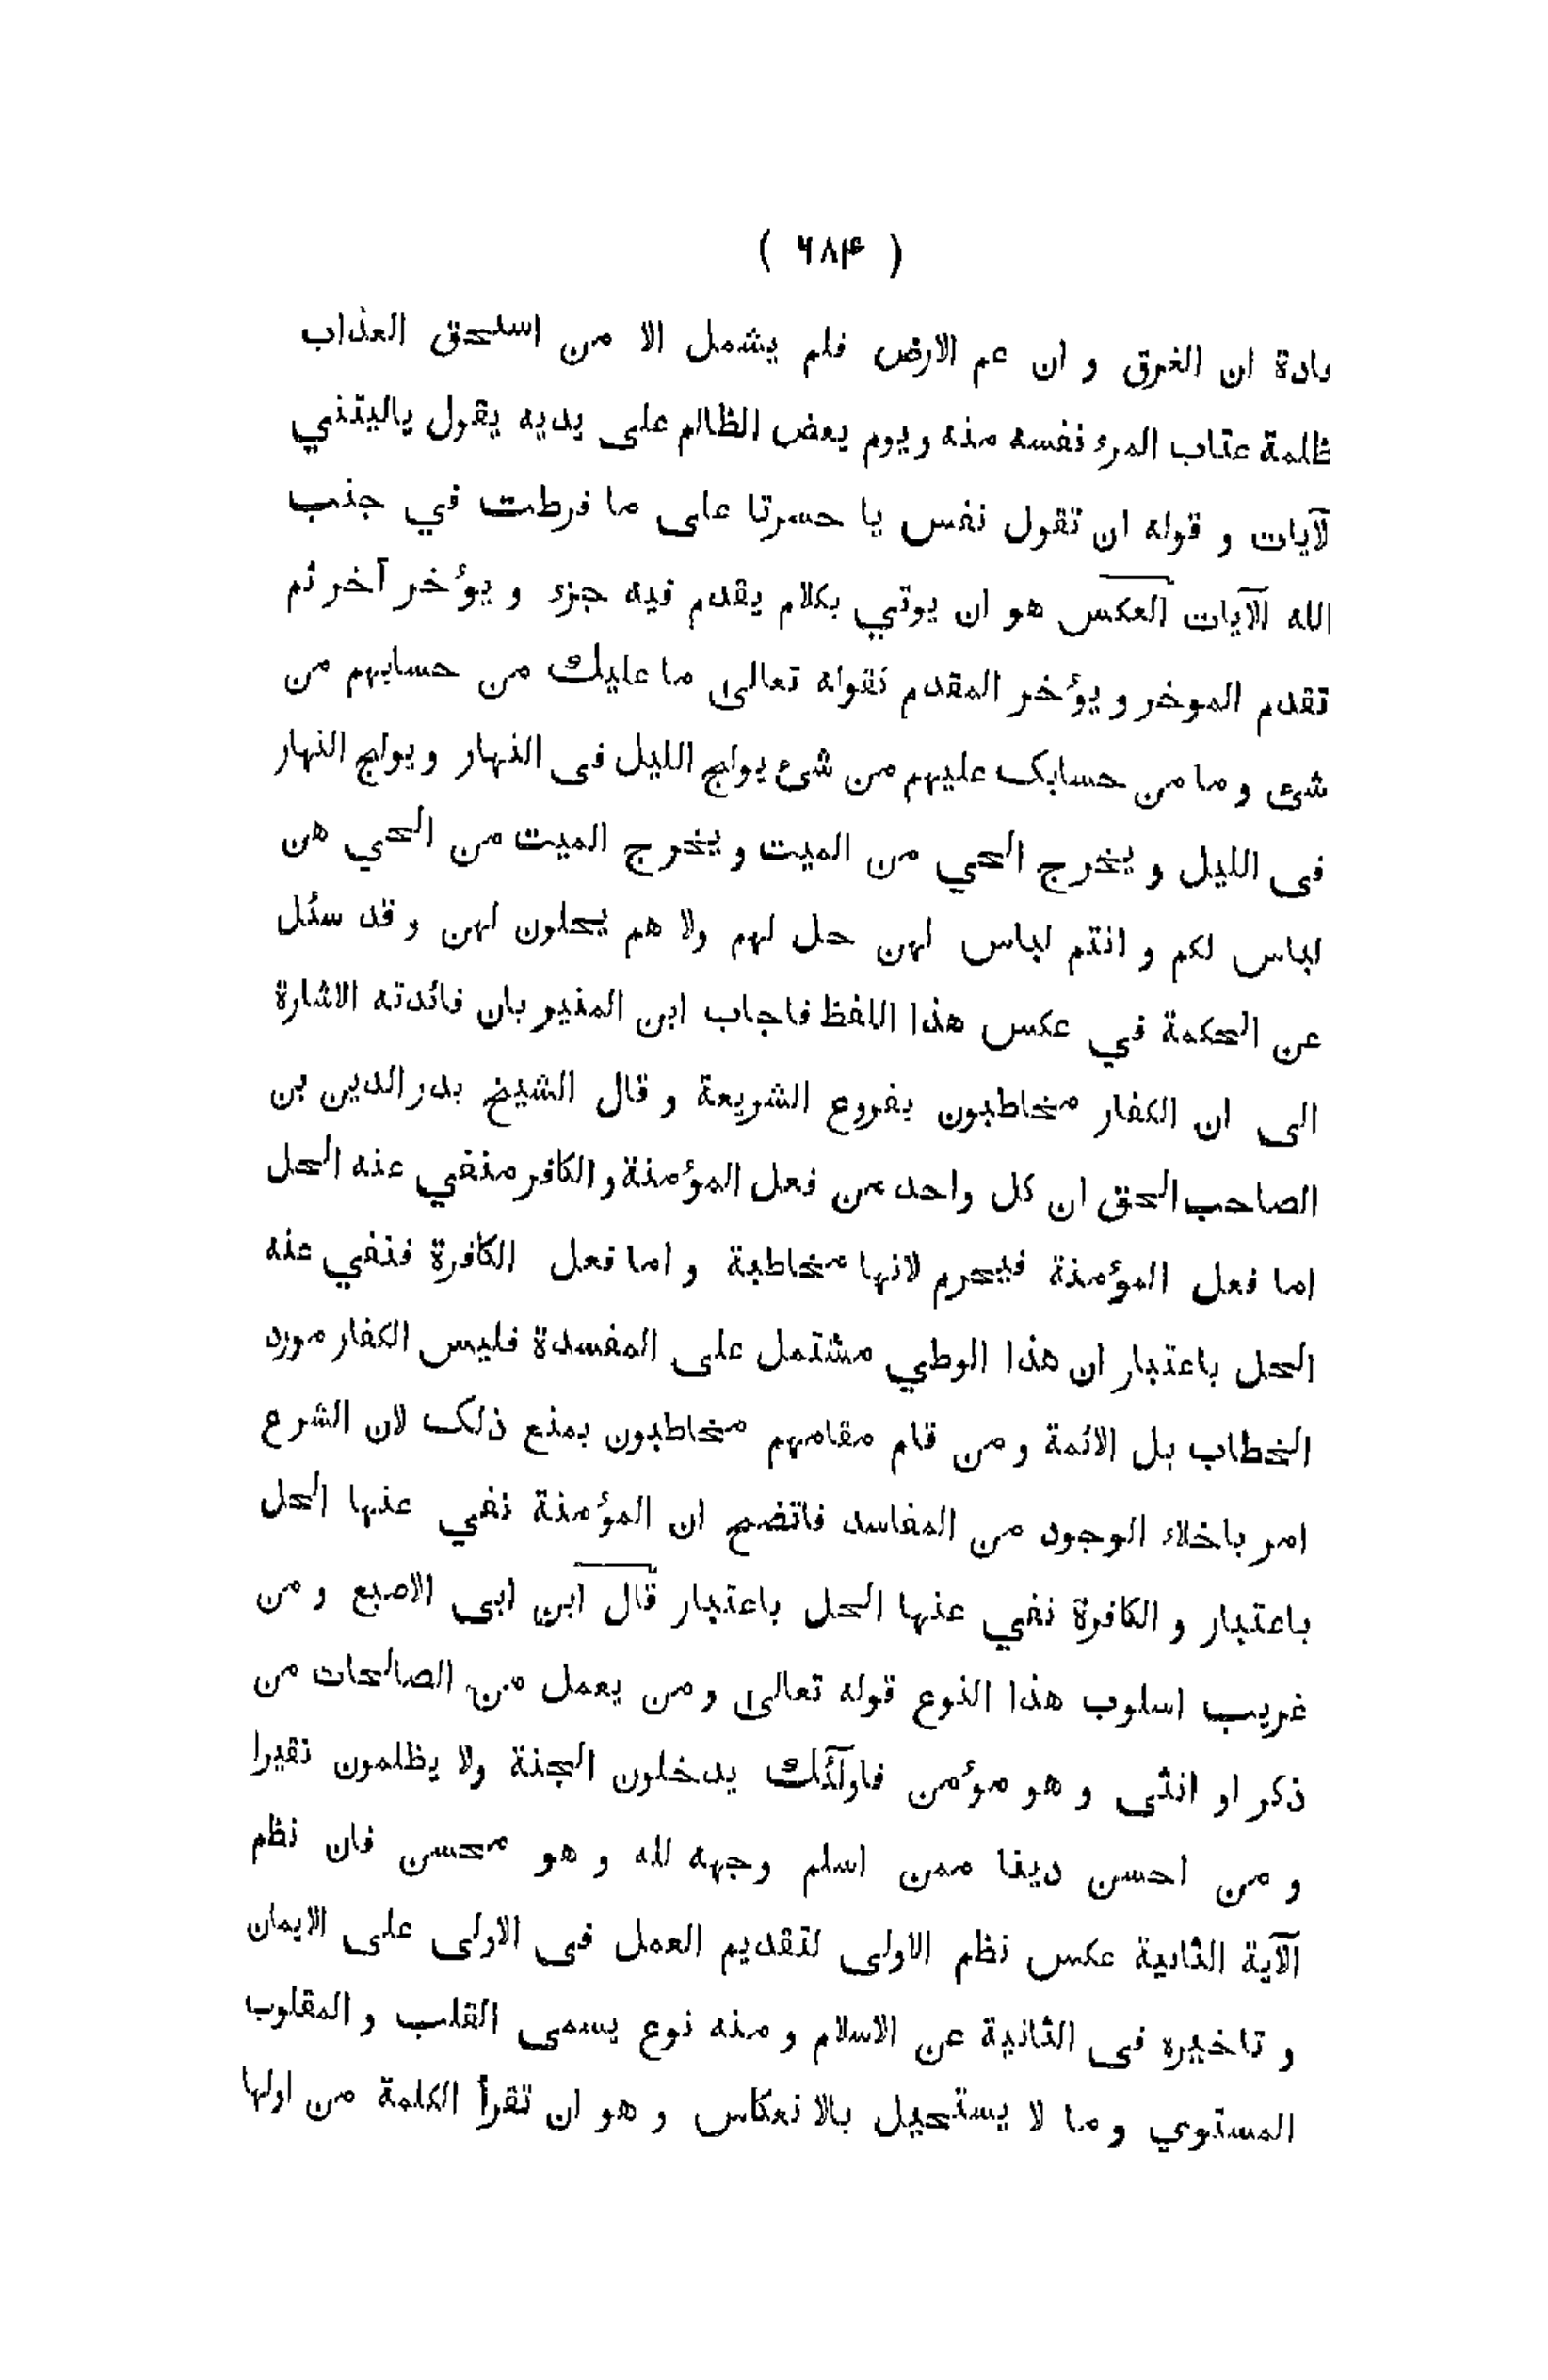 ( ٦٨۴ )
بادة ان الغرق و ان عم الارض فلم يشمل الا من استحق العذاب
ظلمة عتاب المرء نفسه منه و يوم يعض الظالم على يديه يقول ياليتني
لآيات و قوله ان تقول نفس يا حسرتا على ما فرطت في جنب
الله الآيات العكس هو ان يوتي بكلام يقدم فيه جزء و يؤخر آخر ثم
تقدم الموخر و يؤخر المقدم نقوله تعالى ما عليك من حسابهم من
شئ و ما من حسابک عليهم من شئ يولج الليل فى النهار و يولج النهار
فى الليل و يخرج الحي من الميت و يخرج الميت من الحي هن
لباس لكم و انتم لباس لهن حل لهم ولا هم يحلون لهن و قد سئل
عن الحكمة في عكس هذا اللفظ فاجاب ابن المنير بان فائدته الاشارة
الى ان الكفار مخاطبون بفروع الشريعة و قال الشيخ بدر الدين بن
الصاحب الحق ان كل واحد من فعل المؤمنة و الكافر منفي عنه الحل
اما فعل المؤمنة فيحرم لانها مخاطبة و اما فعل الكافرة فنفي عنه
الحل باعتبار ان هذا الوطي مشتمل على المفسدة فليس الكفار مورد
الخطاب بل الائمة و من قام مقامهم مخاطبون بمنع ذلک لان الشرع
امر باخلاء الوجود من المفاسد فاتضح ان المؤمنة نفي عنها الحل
باعتبار و الكافرة نفي عنها الحل باعتبار قال ابن ابى الاصبع و من
غريب اسلوب هذا النوع قوله تعالى و من يعمل من الصالحات من
ذكر او انثى و هو مؤمن فاولٓئك يدخلون الجنة ولا يظلمون نقيرا
و من احسن دينا ممن اسلم وجهه لله و هو محسن فان نظم
الآية الثانية عكس نظم الاولى لتقديم العمل فى الاولى على الايمان
و تاخيره فى الثانية عن الاسلام و منه نوع يسمى القلب و المقلوب
المستوي و ما لا يستحيل بالانعكاس و هو ان تقرأ الكلمة من اولها